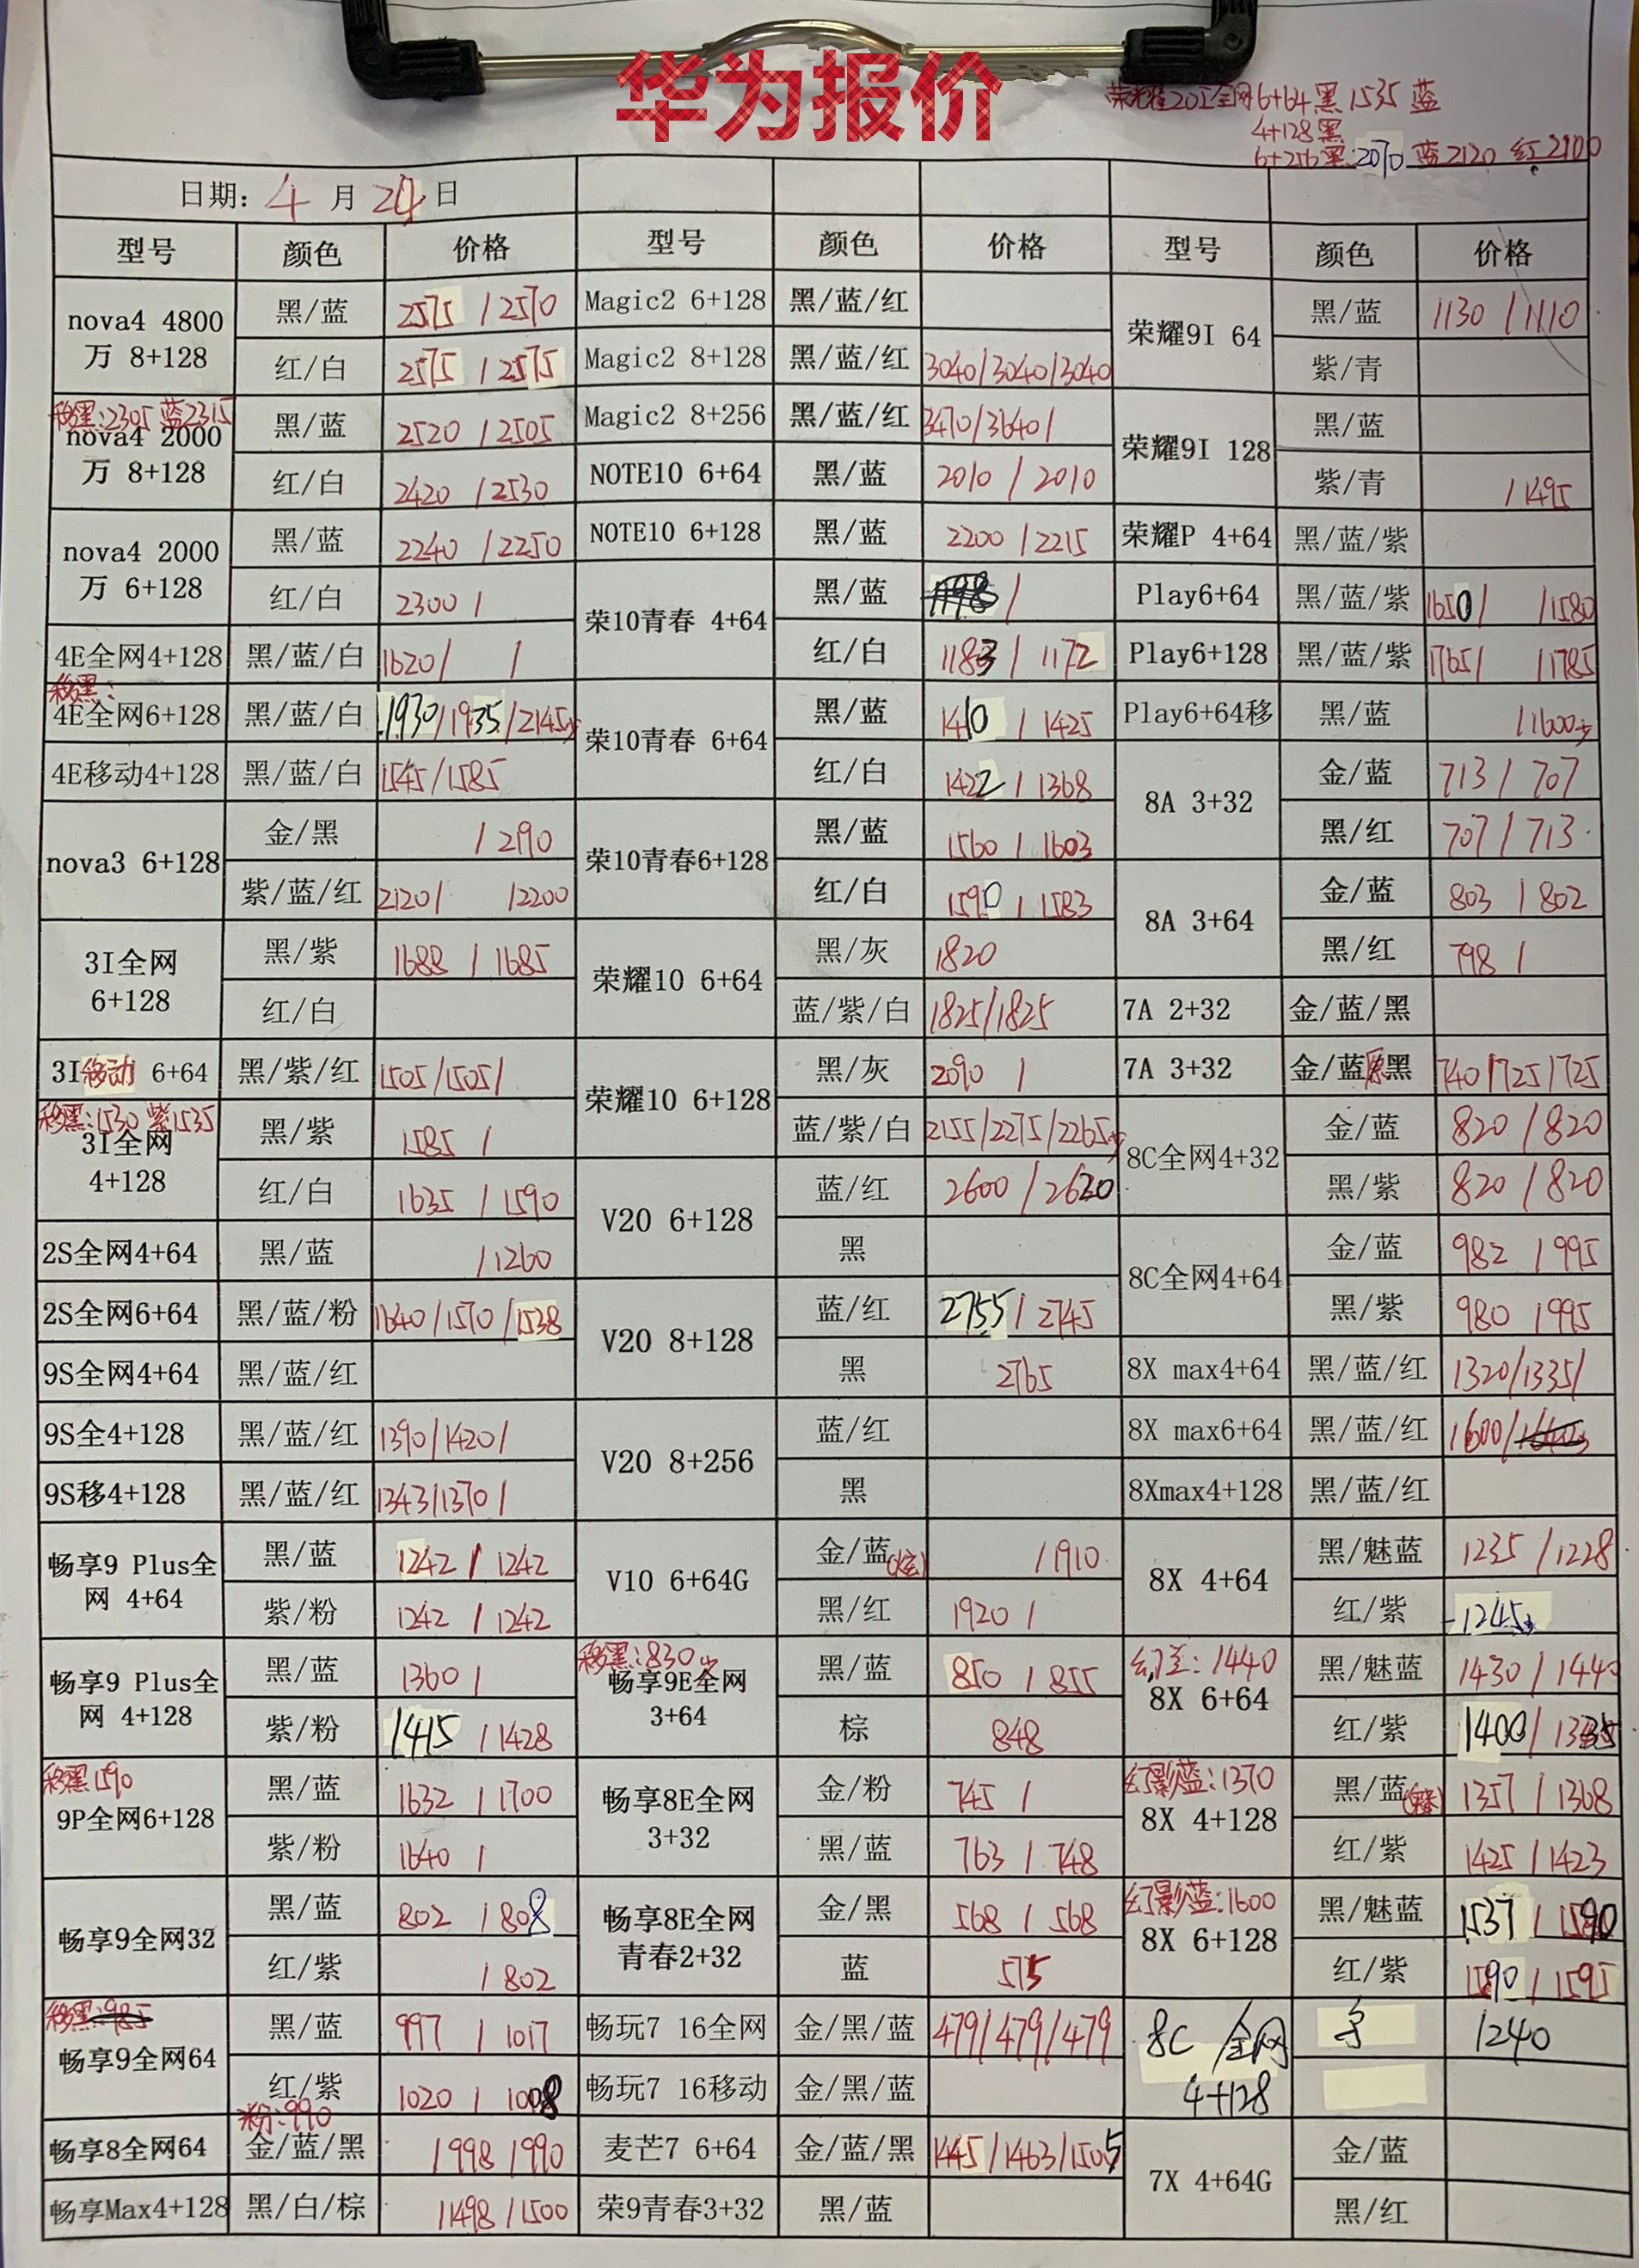 华为报价
荣耀20I全网6+64黑1535 蓝
4+128黑
6+256黑:2070 蓝2120 红2100
日期: 4 月 24 日
型号 颜色 价格 型号 颜色 价格 型号 颜色 价格
nova4 4800万 8+128 黑/蓝 2575 / 2570 Magic2 6+128 黑/蓝/红 荣耀9I 64 黑/蓝 1130 / 1110
红/白 2575 / 2575 Magic2 8+128 黑/蓝/红 3040/3040/3040 紫/青
移黑:2305 蓝2315
nova4 2000万 8+128 黑/蓝 2520 / 2505 Magic2 8+256 黑/蓝/红 3470/3640/ 荣耀9I 128 黑/蓝
红/白 2420 / 2530 NOTE10 6+64 黑/蓝 2010 / 2010 紫/青 / 1495
nova4 2000万 6+128 黑/蓝 2240 / 2250 NOTE10 6+128 黑/蓝 2200 / 2215 荣耀P 4+64 黑/蓝/紫
红/白 2300 / 荣10青春 4+64 黑/蓝 / Play6+64 黑/蓝/紫 1650/ /1580
4E全网4+128 黑/蓝/白 1620/ / 红/白 1183 / 1172 Play6+128 黑/蓝/紫 1765/ /1785
移黑:
4E全网6+128 黑/蓝/白 1930/1935/2145 荣10青春 6+64 黑/蓝 1410 / 1425 Play6+64移 黑/蓝 / 1600
4E移动4+128 黑/蓝/白 1545/1585 红/白 1422 / 1368 8A 3+32 金/蓝 713 / 707
nova3 6+128 金/黑 / 2190 荣10青春6+128 黑/蓝 1560 / 1603 黑/红 707 / 713
紫/蓝/红 2120/ /2200 红/白 1590 / 1583 8A 3+64 金/蓝 803 / 802
3I全网 6+128 黑/紫 1688 / 1685 荣耀10 6+64 黑/灰 1820 黑/红 798 /
红/白 蓝/紫/白 1825/1825 7A 2+32 金/蓝/黑
3I移动 6+64 黑/紫/红 1505/1505/ 荣耀10 6+128 黑/灰 2090 / 7A 3+32 金/蓝 黑 740/725/725
移黑:1530 紫1535
3I全网 4+128 黑/紫 1585 / 蓝/紫/白 2155/2275/2265 8C全网4+32 金/蓝 820 / 820
红/白 1635 / 1590 V20 6+128 蓝/红 2600 / 2620 黑/紫 820 / 820
2S全网4+64 黑/蓝 / 1260 黑 8C全网4+64 金/蓝 982 / 995
2S全网6+64 黑/蓝/粉 1640/1570/1538 V20 8+128 蓝/红 2755 / 2745 黑/紫 980 / 995
9S全网4+64 黑/蓝/红 黑 2765 8X max4+64 黑/蓝/红 1320/1335/
9S全4+128 黑/蓝/红 1390/1420/ V20 8+256 蓝/红 8X max6+64 黑/蓝/红 1600/
9S移4+128 黑/蓝/红 1343/1370/ 黑 8Xmax4+128 黑/蓝/红
畅享9 Plus全网 4+64 黑/蓝 1242 / 1242 V10 6+64G 金/蓝 / 1910 8X 4+64 黑/魅蓝 1235 / 1228
紫/粉 1242 / 1242 黑/红 1920 / 红/紫 1245
移黑:830
幻蓝: 1440
畅享9 Plus全网 4+128 黑/蓝 1360 / 畅享9E全网 3+64 黑/蓝 850 / 855 8X 6+64 黑/魅蓝 1430 / 1440
紫/粉 1415 / 1428 棕 848 红/紫 1400 / 1335
移黑1590
幻影蓝:1370
9P全网6+128 黑/蓝 1632 / 1700 畅享8E全网 3+32 金/粉 745 / 8X 4+128 黑/蓝 1357 / 1368
紫/粉 1640 / 黑/蓝 763 / 748 红/紫 1425 / 1423
幻影蓝:1600
畅享9全网32 黑/蓝 802 / 808 畅享8E全网 青春2+32 金/黑 568 / 568 8X 6+128 黑/魅蓝 1537 / 1590
红/紫 / 802 蓝 575 红/紫 1590 / 1595
移黑:985
畅享9全网64 黑/蓝 997 / 1017 畅玩7 16全网 金/黑/蓝 479/479/479 8C 全网 4+128 1240
红/紫 1020 / 1008 畅玩7 16移动 金/黑/蓝
粉:990
畅享8全网64 金/蓝/黑 / 998 / 990 麦芒7 6+64 金/蓝/黑 1445/1463/1505 7X 4+64G 金/蓝
畅享Max4+128 黑/白/棕 / 1498 / 1500 荣9青春3+32 黑/蓝 黑/红